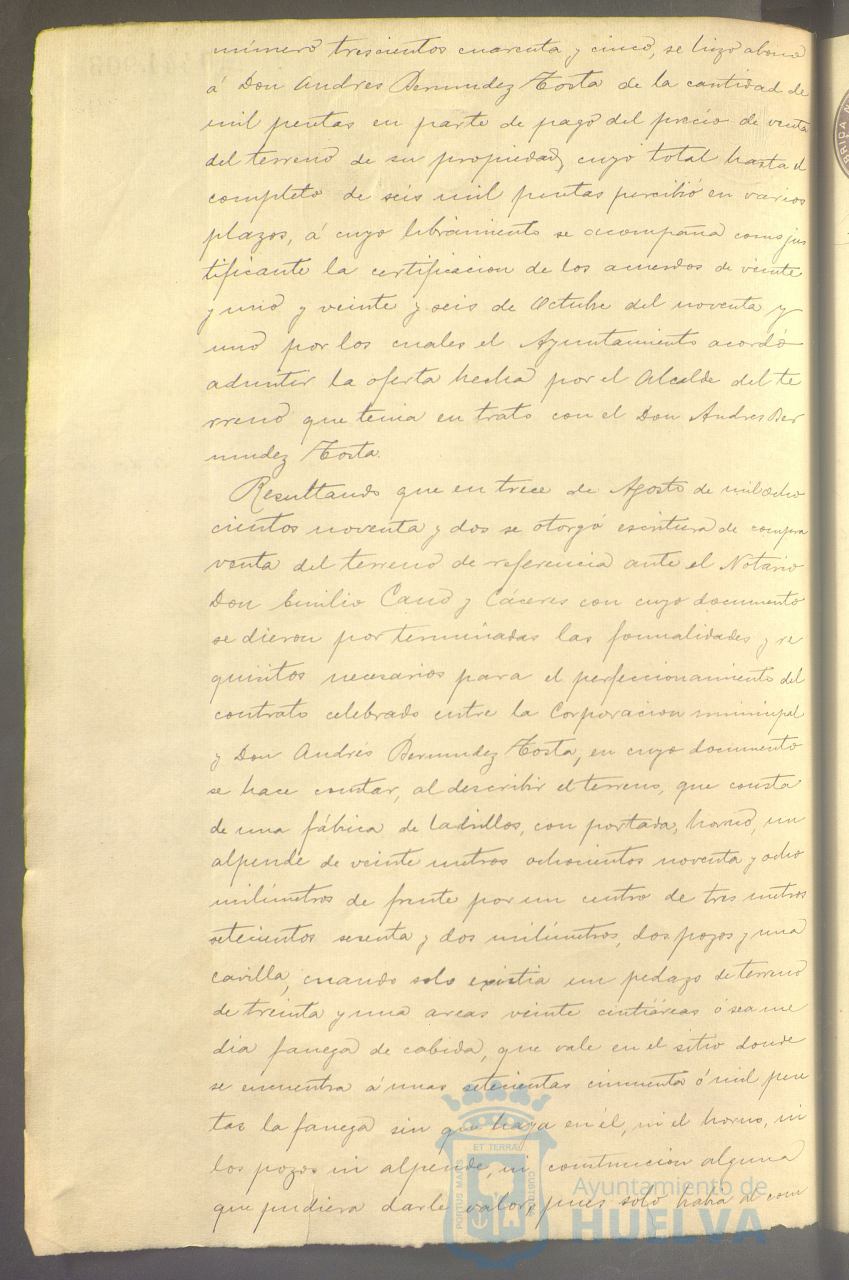 número trescientos cuarenta y cinco, se hizo abono
á Don Andres Bermudez Tosta de la cantidad de
mil pesetas en parte de pago del precio de venta
del terreno de su propiedad, cuyo total hasta el
completo de seis mil pesetas percibió en varios
plazos, á cuyo libramiento se acompaña como jus
tificante la certificacion de los acuerdos de veinte
y uno y veinte y seis de Octubre del noventa y
uno por los cuales el Ayuntamiento acordó
admitir la oferta hecha por el Alcalde del te
rreno que tenia en trato con el Don Andres Ber
mudez Tosta.
Resultando que en trece de Agosto de mil ocho
cientos noventa y dos se otorgó escritura de compra
venta del terreno de referencia ante el Notario
Don Emilio Cano y Cáceres con cuyo documento
se dieron por terminadas las formalidades y re
quisitos necesarios para el perfeccionamiento del
contrato celebrado entre la Corporacion municipal
y Don Andrés Bermudez Tosta, en cuyo documento
se hace constar, al describir el terreno, que consta
de una fábrica de ladrillos, con portada, horno, un
alpende de veinte metros ochocientos noventa y ocho
milímetros de frente por un centro de tres metros
setecientos sesenta y dos milímetros, dos pozos y una
casilla, cuando solo existia un pedazo de terreno
de treinta y una areas veinte centiáreas ó sea me
dia fanega de cabida, que vale en el sitio donde
se encuentra á unas setecientas cincuenta ó mil pese
tas la fanega sin que haya en él, ni el horno, ni
los pozos ni alpende, ni construccion alguna
que pudiera darle valor, pues solo habia al com
PORTUS MARIS ET TERRAE CUSTODIA
Ayuntamiento de
HUELVA